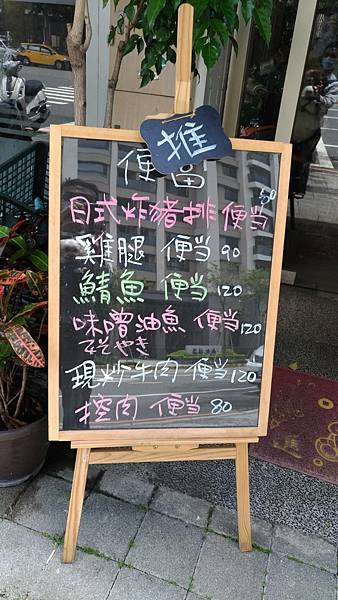 推
便當
日式炸豬排便当
雞腿 便当 90
鯖魚 便当 120
味噌油魚 便当 120
みそやき
現炒牛肉 便当 120
控肉 便当 80